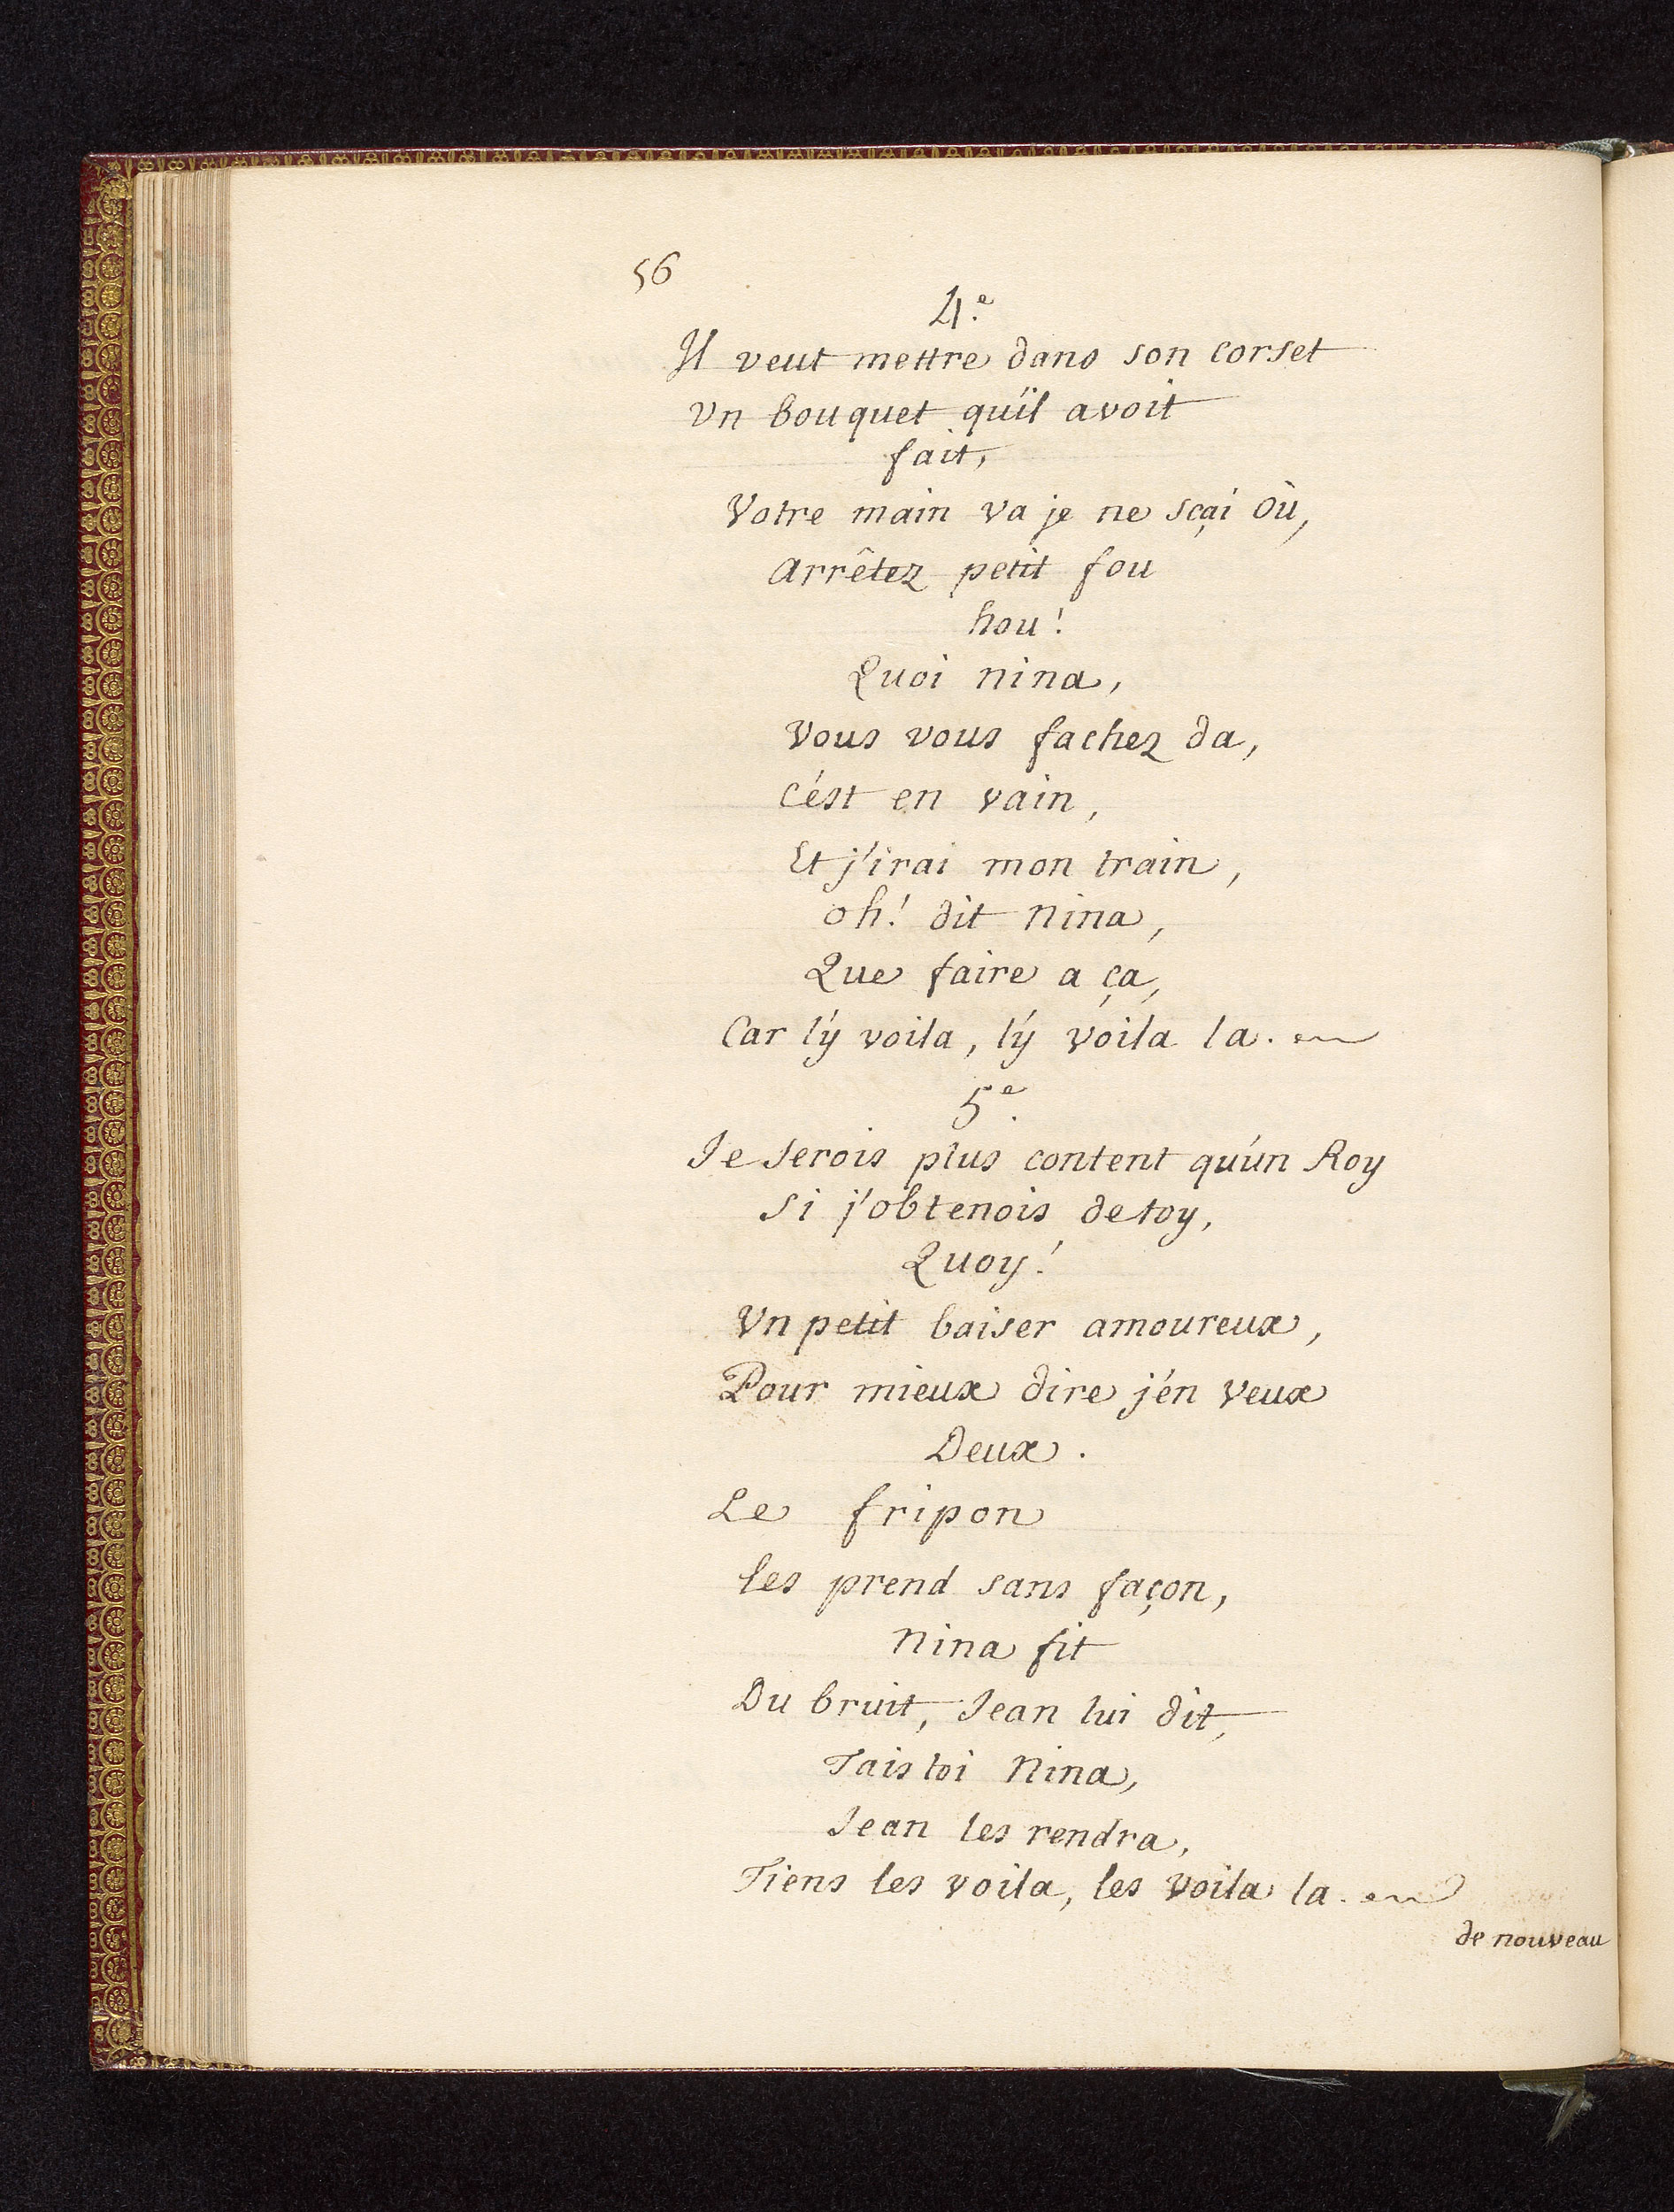 56
4.e
Il veut mettre dans son corset
Un bouquet qu'il avoit
fait,
Votre main va je ne sçai où,
Arrêtez petit fou
hou!
Quoi nina,
Vous vous fachez da,
C'est en vain,
Et j'irai mon train,
oh! dit Nina,
Que faire a ça,
Car l'y voila, l'y voila la.
5.e
Je serois plus content qu'un Roy
Si j'obtenois de toy,
Quoy!
Un petit baiser amoureux,
Pour mieux dire j'en veux
Deux.
Le fripon
les prend sans façon,
Nina fit
Du bruit, Jean lui dit,
Tais toi Nina,
Jean les rendra,
Tiens les voila, les voila la.
de nouveau